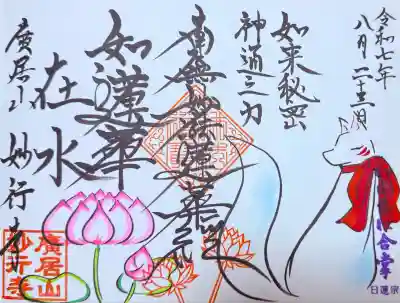 令和七年
八月二十三日
如来秘密
神通之力
南無妙法蓮華経
如蓮華
在水
廣居山 妙行寺
廣居山
妙行寺
合掌
日蓮宗